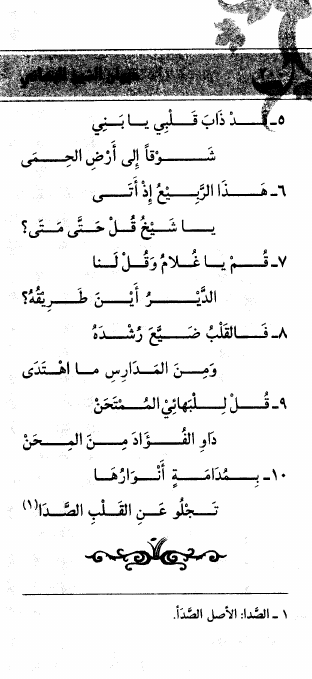 ديوان الشيخ البهائي
٥ـ قَدْ ذَابَ قَلْبِي يا بَنِي
شَوْقاً إلى أَرْضِ الحِمَى
٦ـ هَذَا الرَّبِيْعُ إذْ أَتَى
يا شَيْخُ قُلْ حَتَّى مَتَى؟
٧ـ قُمْ يا غُلامُ وَقُلْ لَنا
الدَّيْرُ أَيْنَ طَرِيْقُهُ؟
٨ـ فَالقَلْبُ ضَيَّعَ رُشْدَهُ
وَمِنَ المَدَارِسِ ما اهْتَدَى
٩ـ قُلْ لِلْبَهائِيْ المُمْتَحَنْ
دَاوِ الفُؤَادَ مِنَ المِحَنْ
١٠ـ بِمُدَامَةٍ أَنْوَارُهَا
تَجْلُو عَنِ القَلْبِ الصَّدَا(١)
١ ـ الصَّدا: الأصل الصَّدَأ.